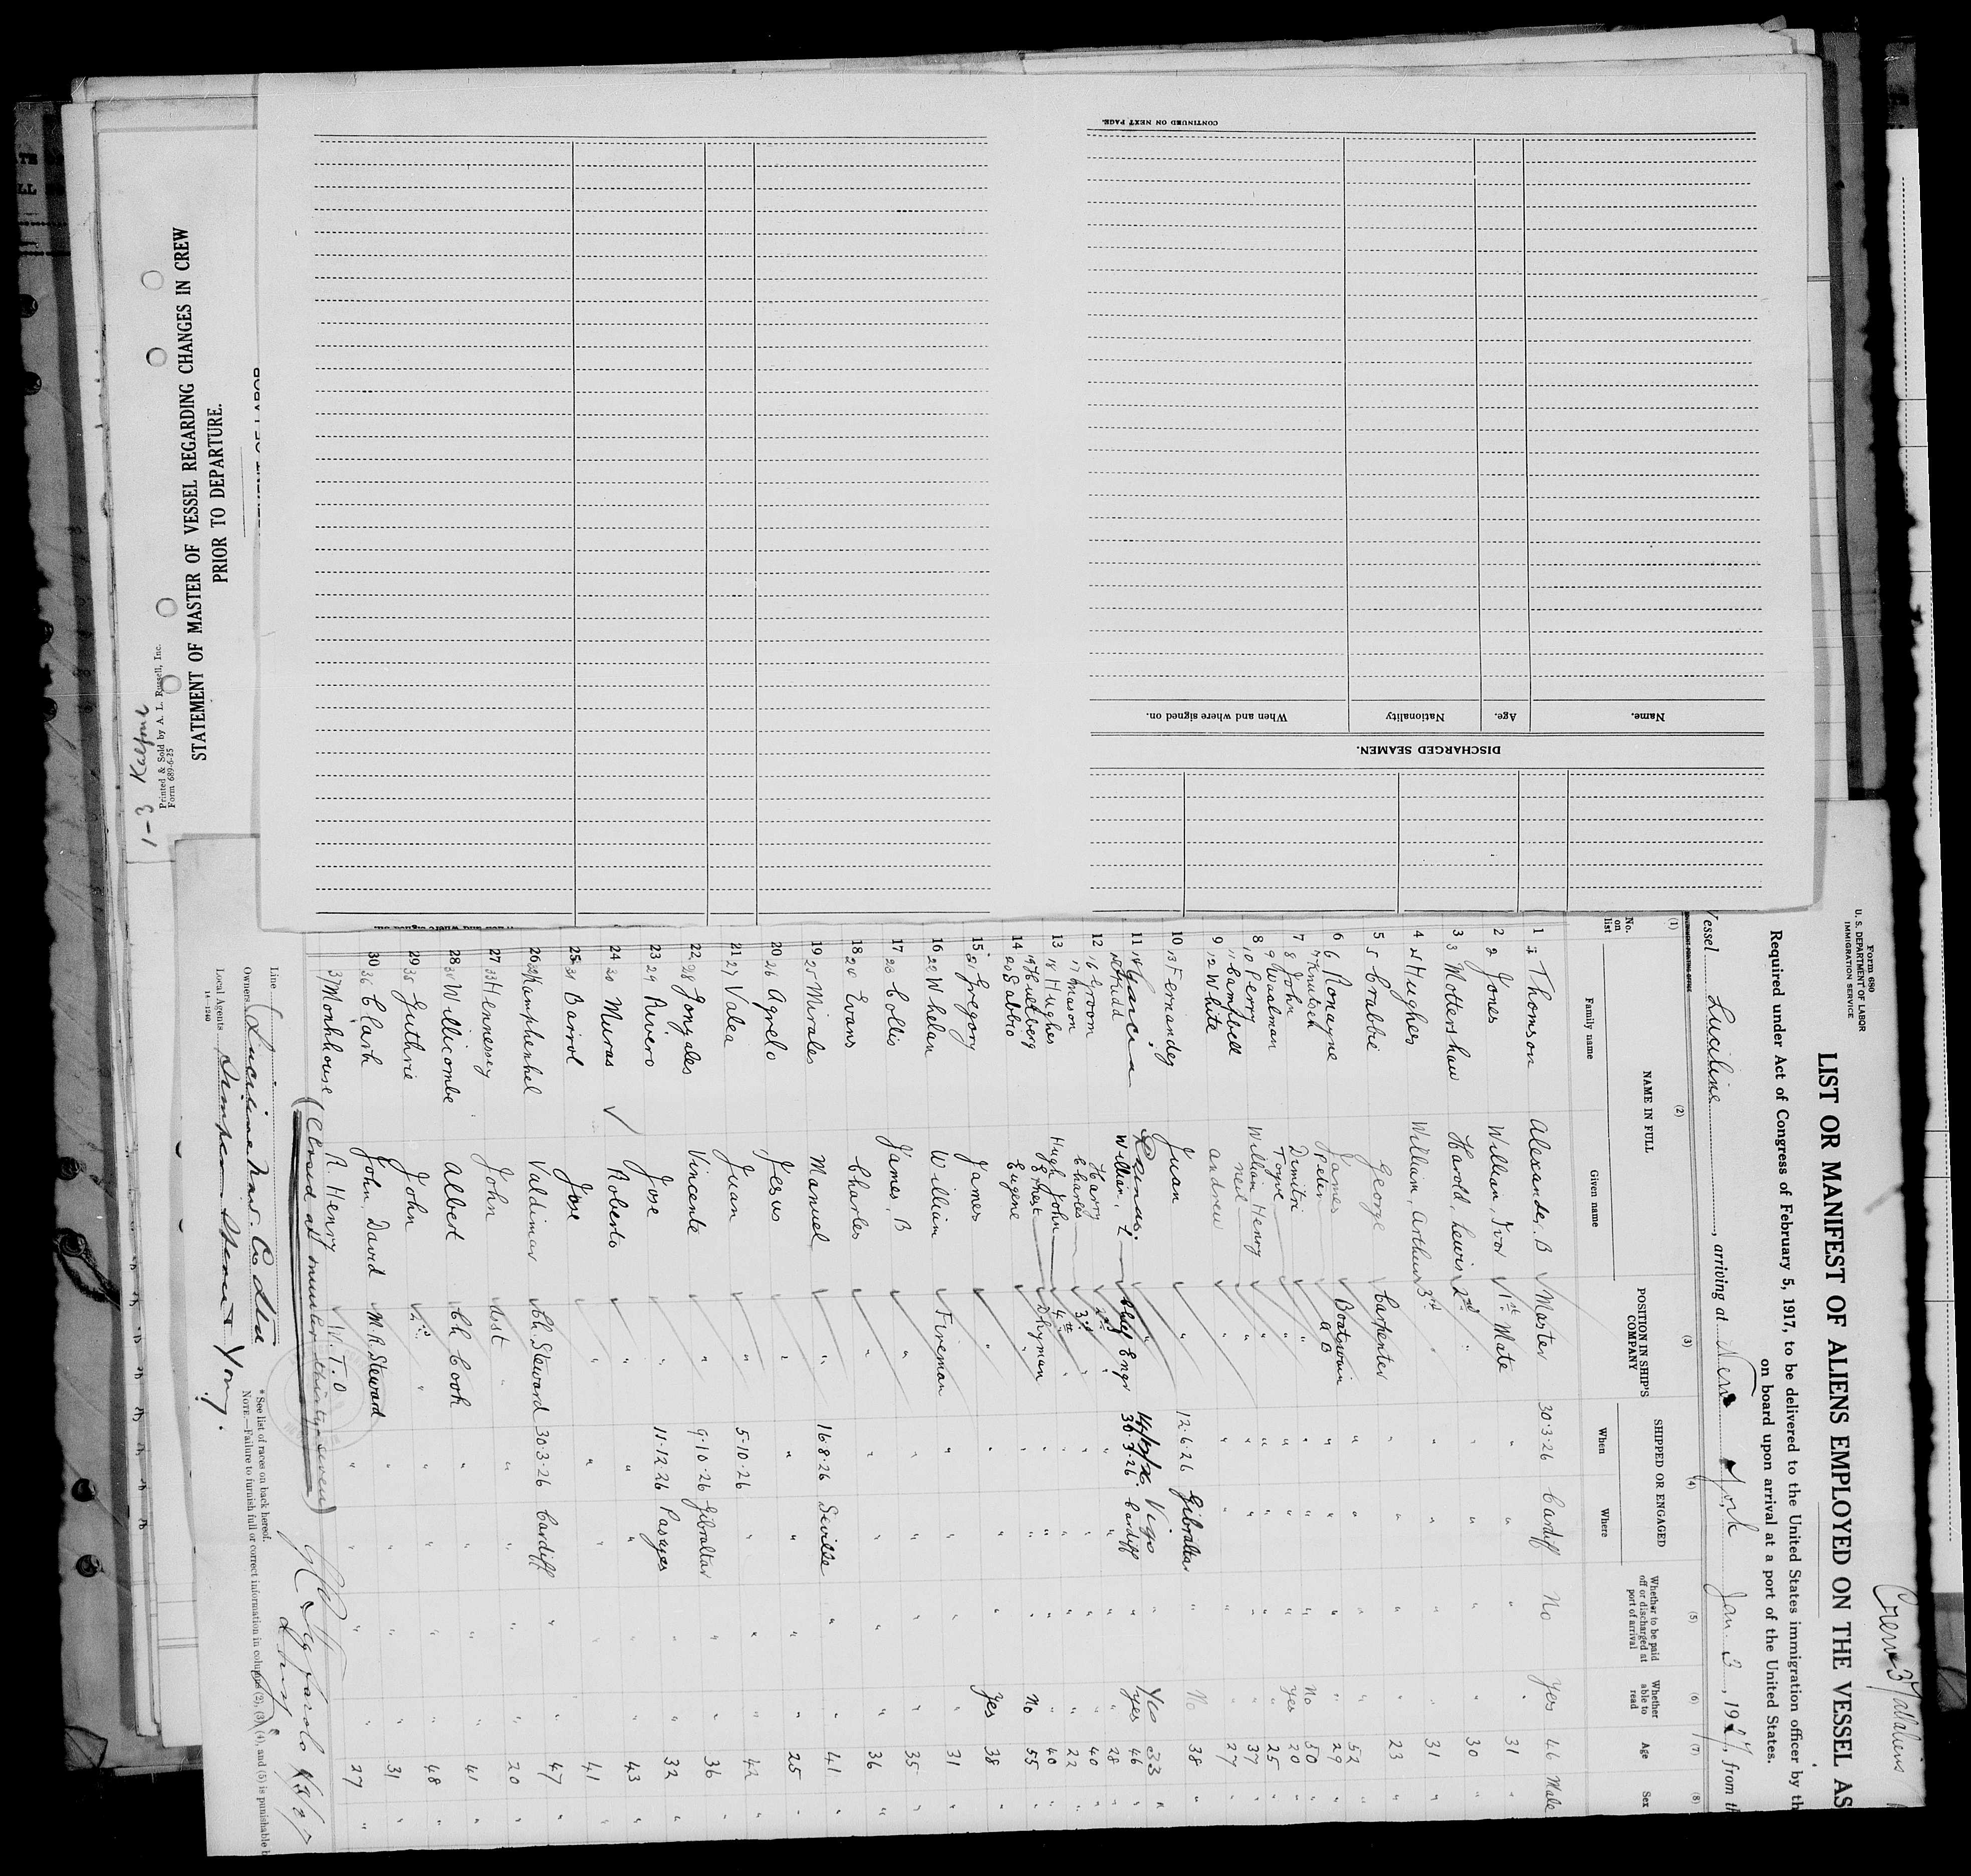 CONTINUED ON NEXT PAGE.
When and where signed on.
Nationality
Age.
Name.
DISCHARGED SEAMEN.
STATEMENT OF MASTER OF VESSEL REGARDING CHANGES IN CREW
PRIOR TO DEPARTURE.
Printed & Sold by A. L. Russell, Inc.
Form 689-6-25
1-3
Crew 37 all aliens
Form 680
U. S. DEPARTMENT OF LABOR
IMMIGRATION SERVICE
LIST OR MANIFEST OF ALIENS EMPLOYED ON THE VESSEL AS
Required under Act of Congress of February 5, 1917, to be delivered to the United States immigration officer by th
on board upon arrival at a port of the United States.
Vessel Luciline, arriving at New York Jan. 3, 1927, from th
(1) (2) (3) (4) (5) (6) (7) (8)
No. on list
NAME IN FULL
Family name
Given name
POSITION IN SHIP'S COMPANY
SHIPPED OR ENGAGED
When
Where
Whether to be paid off or discharged at port of arrival
Whether able to read
Age
Sex
1 1 Thomson Alexander, B ✓ Master 30.3.26 Cardiff No Yes 46 Male
2 2 Jones William, Ivor ✓ 1st Mate " " " " 31 "
3 3 Mottershaw Harold, Lewis 2nd " " " " " 30 "
4 4 Hughes William, Arthur 3rd " " " " " 31 "
5 5 Crabbie George ✓ Carpenter " " " " 23 "
6 6 Ronayne James ✓ Boatswain " " " " 52 "
7 Knutsen Peder A B " " " " 29 "
7 8 John Dimitri ✓ " " " " No 50 "
9 Waalman Torgve ✓ " " " " Yes 20 "
8 10 Perry William Henry ✓ " " " " " 25 "
11 Campbell Neil ✓ " " " " " 37 "
9 12 White Andrew ✓ " " " " " 27 "
10 13 Fernandez Juan ✓ " 12.6.26 Gibraltar " No 38 "
11 14 Garcia ✓ " Vigo " Yes 33 "
15 Kidd William, L Chief Engr 30.3.26 Cardiff " Yes 46 "
12 16 Groom Harry ✓ 2nd " " " " " 28 "
17 Mason Charles ✓ 3rd " " " " " 40 "
13 18 Hughes Hugh John ✓ 4th " " " " " 22 "
19 Hultberg Ernest ✓ Dkyman " " " " 40 "
14 20 Gabbro Eugene ✓ " " " " No 55 "
15 21 Gregory James ✓ " " " " Yes 38 "
16 22 Whelan William ✓ Fireman " " " " 31 "
17 23 Collis James, B ✓ " " " " " 35 "
18 24 Evans Charles ✓ " " " " " 36 "
19 25 Mirales Manuel ✓ " 16.8.26 Seville " " 41 "
20 26 Agrelo Jesus ✓ " " " " " 25 "
21 27 Valea Juan ✓ " 5.10.26 " " " 42 "
22 28 Gonzales Vincente ✓ " 9.10.26 Gibraltar " " 36 "
23 29 Rivero Jose ✓ " 11.12.26 Pasages " " 32 "
24 30 Muras ✓ Roberto ✓ " " " " " 43 "
25 31 Barrol Jose ✓ " " " " " 41 "
26 32 Kamphenkel Valdimar ✓ Ch. Steward 30.3.26 Cardiff " " 47 "
27 33 Hennessey John ✓ Asst " " " " " 20 "
28 34 Willicombe Albert Ch Cook " " " " 41 "
29 35 Guthrie John ✓ 2nd " " " " " 48 "
30 36 Clark John, David ✓ M.R. Steward " " " " 31 "
37 Monkhouse R. Henry ✓ W. T. O " " " " 27 "
(Closed at number thirty seven)
Line
Owners Luciline Nav. Co. Ltd
Local Agents Simpson Spence & Young.
14-1240
* See list of races on back hereof.
NOTE.—Failure to furnish full or correct information in columns (2), (3), (4), and (5) is punishable b